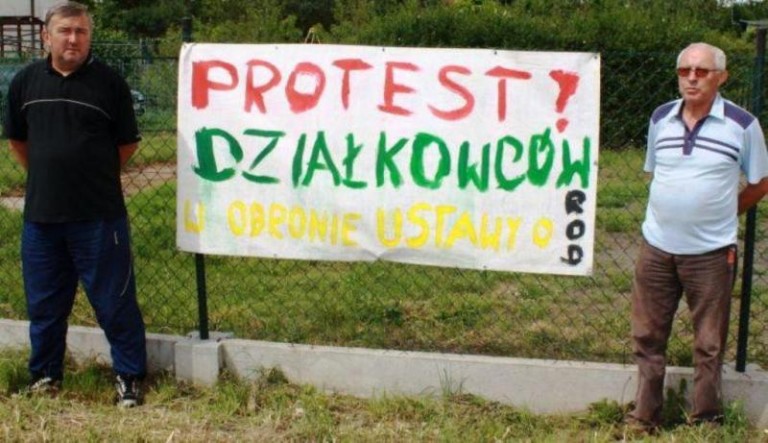 PROTEST?
DZIAŁKOWCÓW
W OBRONIE USTAWY O
ROD